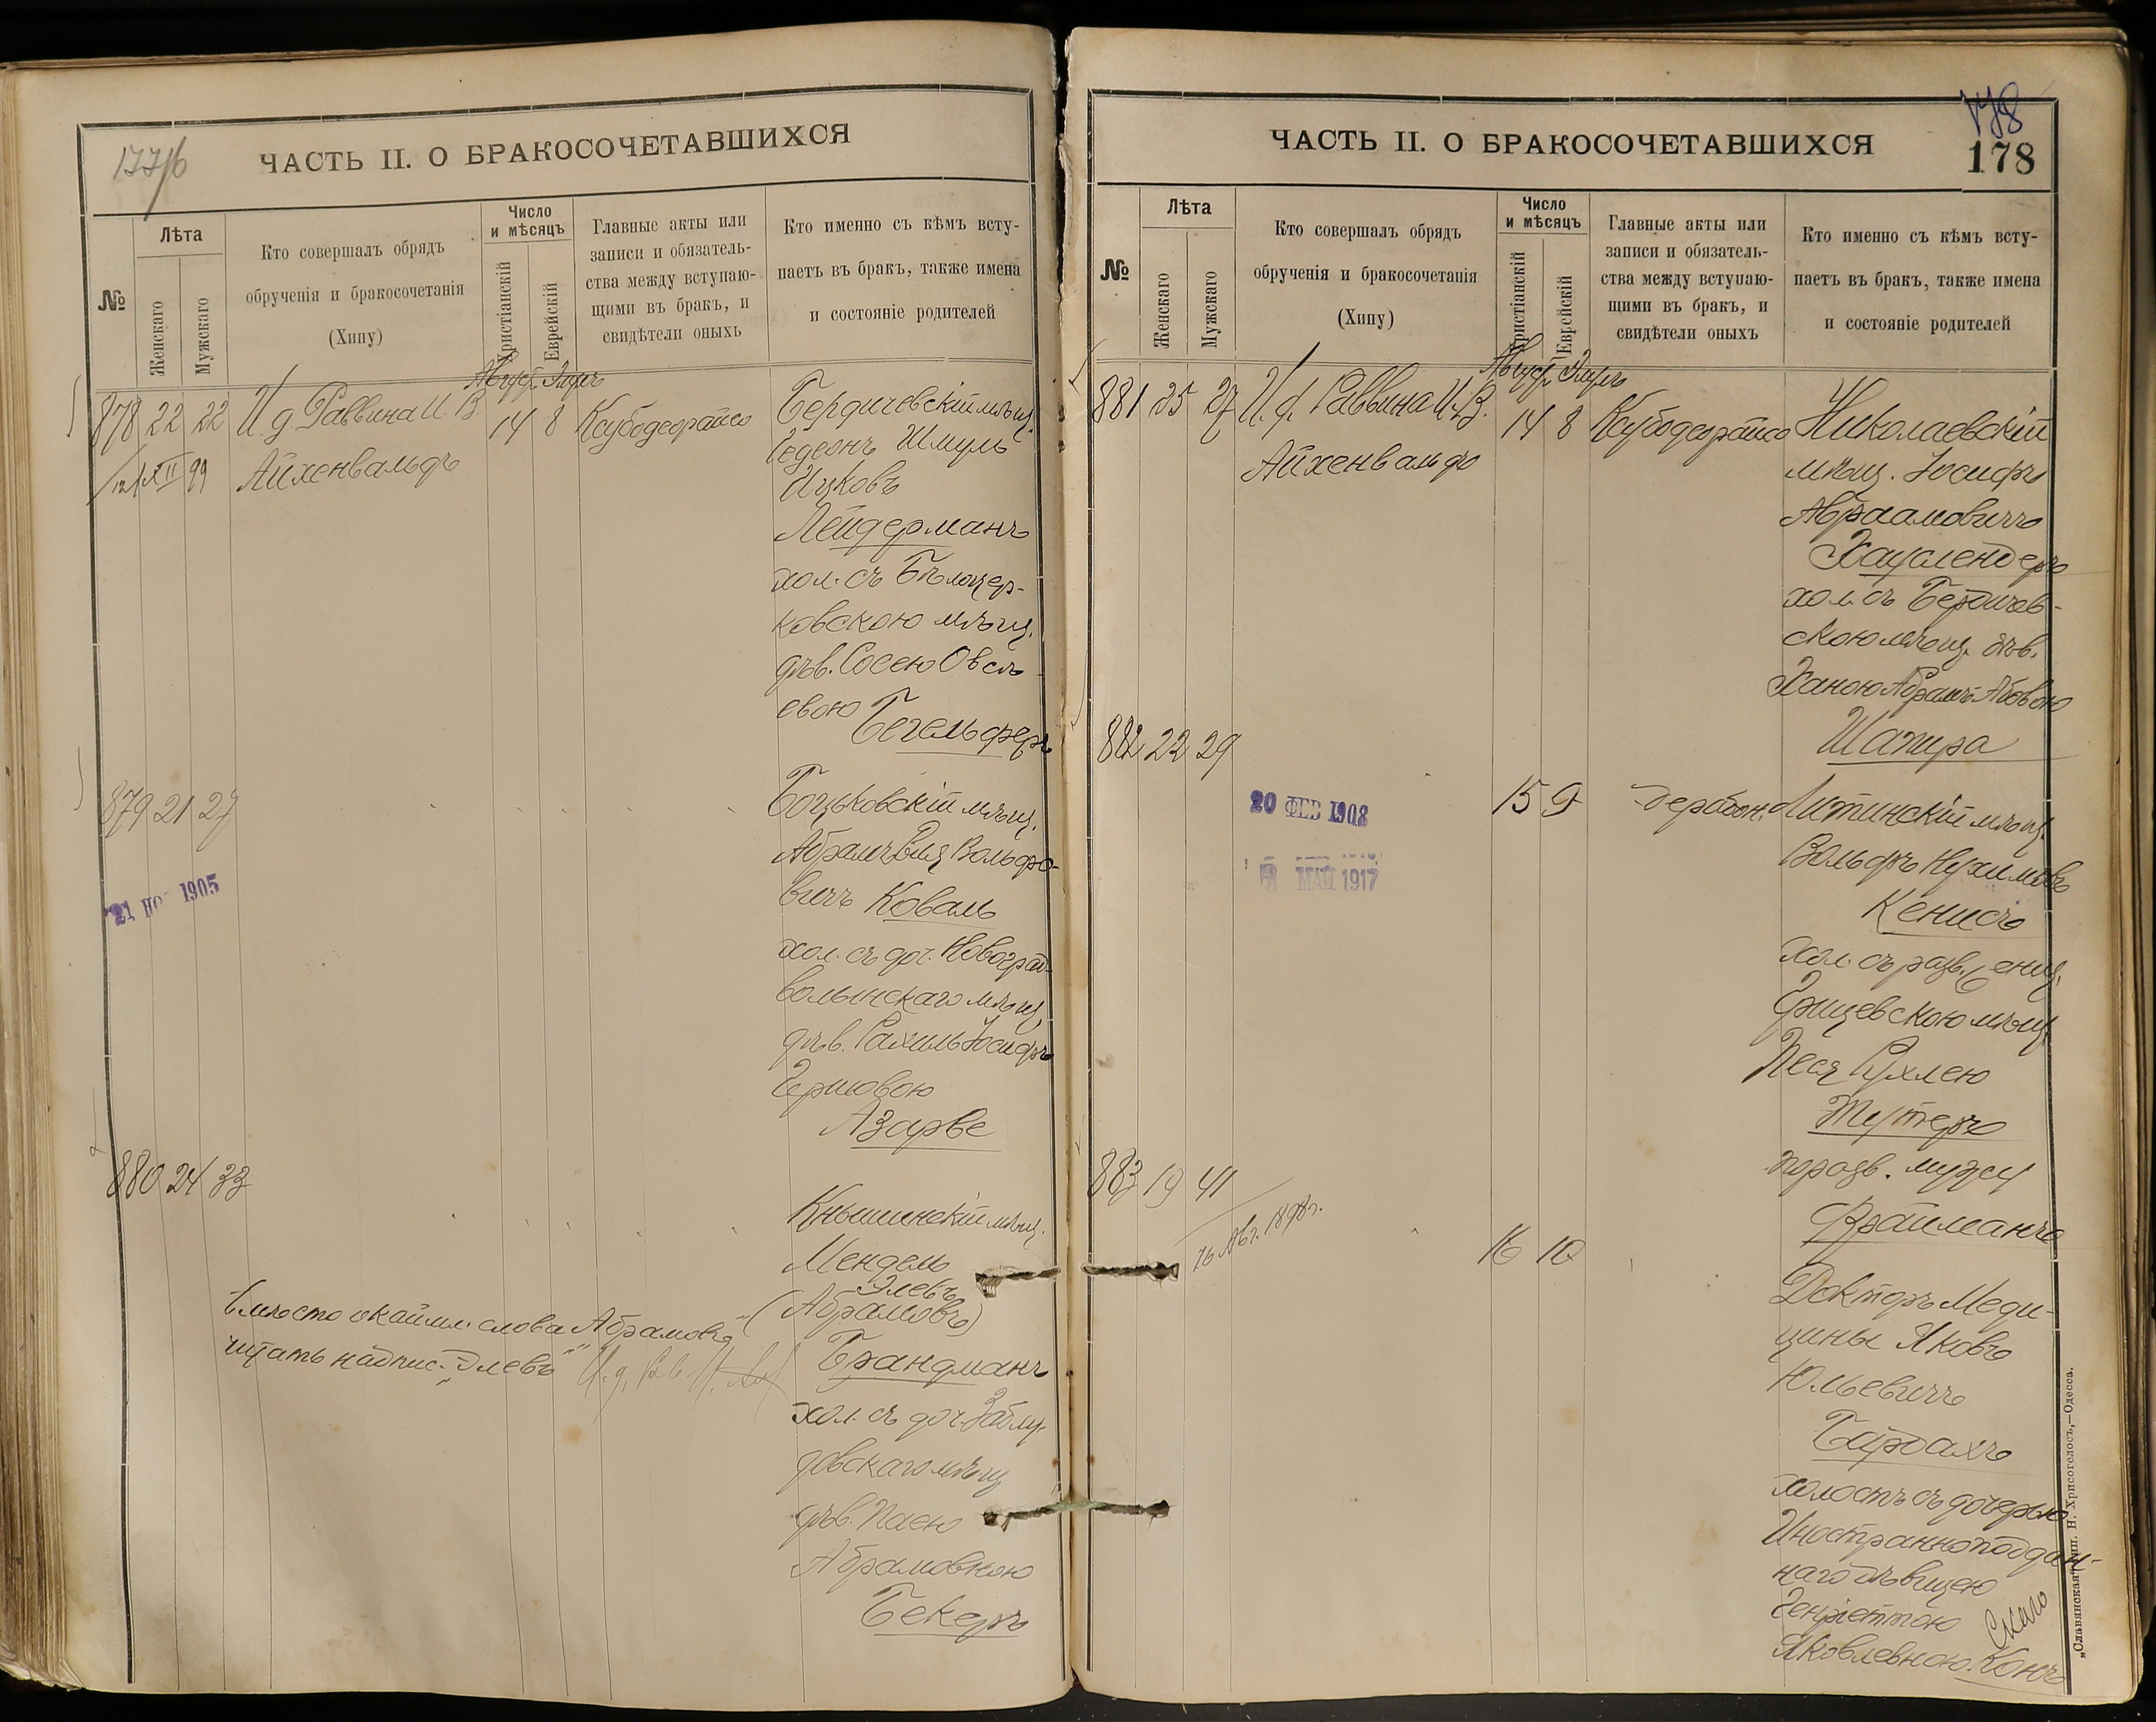 177/б
ЧАСТЬ II. О БРАКОСОЧЕТАВШИХСЯ
№
Лѣта
Женскаго
Мужскаго
Кто совершалъ обрядъ
обрученія и бракосочетанія
(Хипу)
Число
и мѣсяцъ
Христіанскій
Еврейскій
Главные акты или
записи и обязатель-
ства между вступаю-
щими въ бракъ, и
свидѣтели оныхъ
Кто именно съ кѣмъ всту-
паетъ въ бракъ, также имена
и состояніе родителей
Август Элулъ
878 22 22 И. д. Раввина И. В. 14 8
Айхенвальдъ
XII 99
Бердичевскій мѣщ.
Гедеонъ Шмуль
Ицковъ
Лейдерманъ
хол. съ Бѣлоцер-
ковскою мѣщ.
дѣв. Сосею Овсѣ-
евою
Бегельферъ
879 21 27
21 1905
мѣщ.
Вольфо-
вичъ Коваль
хол. съ доч. Новоград-
волынскаго мѣщ.
дѣв. Рахиль Іосифъ
Гершовою
Азарве
880 24 33
Кнышинскій мѣщ.
Мендель
Элевъ
(Абрамовъ)
Брандманъ
хол. съ доч. Заблу-
довскаго мѣщ
дѣв. Паею
Абрамовною
Бекеръ
Вмѣсто окаймл. слова „Абрамовъ"
читать надпис. „Элевъ"
178
178
ЧАСТЬ II. О БРАКОСОЧЕТАВШИХСЯ
№
Лѣта
Женскаго
Мужскаго
Кто совершалъ обрядъ
обрученія и бракосочетанія
(Хипу)
Число
и мѣсяцъ
Христіанскій
Еврейскій
Главные акты или
записи и обязатель-
ства между вступаю-
щими въ бракъ, и
свидѣтели оныхъ
Кто именно съ кѣмъ всту-
паетъ въ бракъ, также имена
и состояніе родителей
Август Элулъ
881 25 27 И. д. Раввина И. В. 14 8
Айхенвальдъ
Николаевскій
мѣщ. Іосифъ
Авраамовичъ
Хауслендеръ
хол. съ Бердичев-
скою мѣщ. дѣв.
Ханою Абрамъ Абовою
Шапира
882 22 29
15 9
20 ФЕВ 1908
8 МАЙ 1917
Литинскій мѣщ.
Вольфъ Нухимовъ
Кенисъ
хол. съ разв.
Грицевскою мѣщ.
Песя Рухлею
Жутеръ
по разв. мужу
Фрайманъ
883 19 41
16 Авг. 1898 г.
16 10
Докторъ Меди-
цины Яковъ
Юльевичъ
Бардахъ
холостъ съ дочерью
Иностранноподдан-
наго дѣвицею
Генріеттою
Яковлевною Кокъ
„Славянская" тип. Н. Хрисогелосъ,—Одесса.